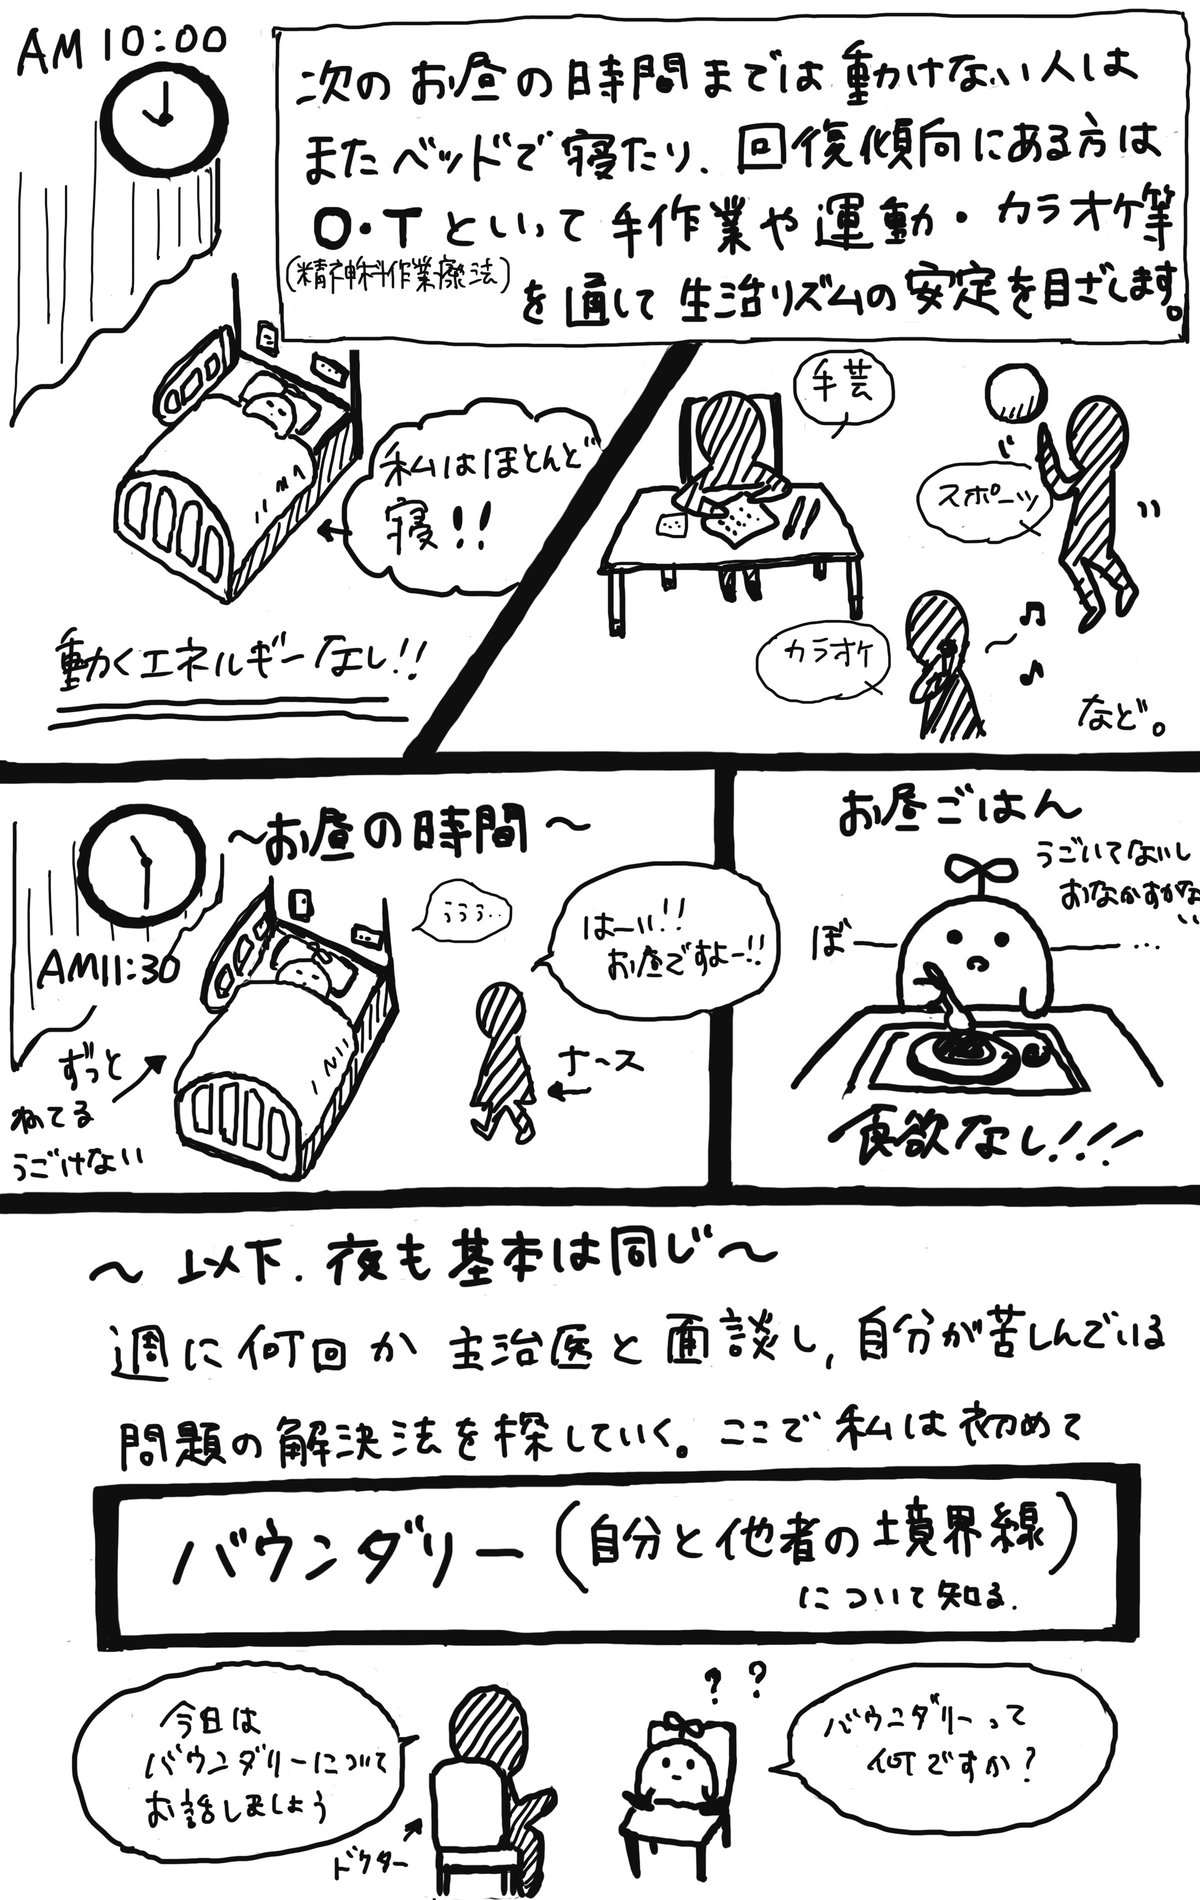 AM 10:00
次のお昼の時間までは動けない人は
またベッドで寝たり、回復傾向にある方は
O・Tといって手作業や運動・カラオケ等
(精神科作業療法)
を通して生活リズムの安定を目ざします。
私はほとんど
寝!!
動くエネルギーなし!!
手芸
スポーツ
カラオケ
など。
〜お昼の時間〜
AM11:30
ううう…
はーい!!
お昼ですよー!!
ずっと
ねてる
うごけない
ナース
お昼ごはん
うごいてないし
おなかすかない
ぼー
…
食欲なし!!!
〜以下、夜も基本は同じ〜
週に何回か主治医と面談し、自分が苦しんでいる
問題の解決法を探していく。ここで私は初めて
バウンダリー(自分と他者の境界線)
について知る.
今日は
バウンダリーについて
お話しましょう
ドクター
? ?
バウンダリーって
何ですか?